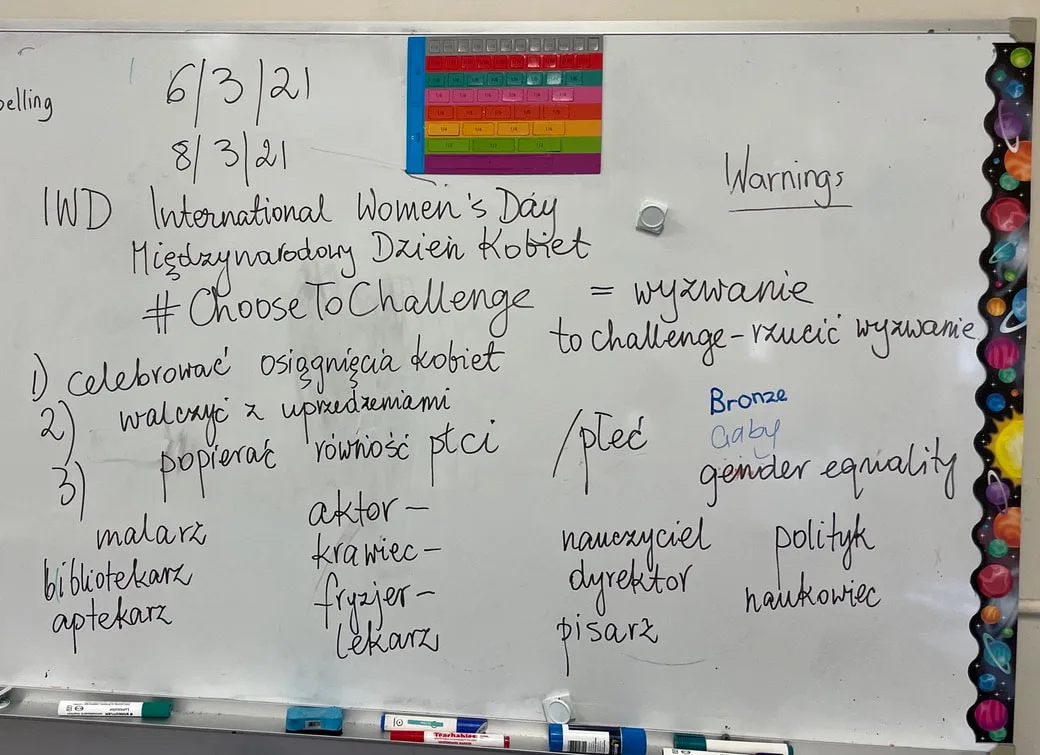 6/3/21
8/3/21
Warnings
IWD International Women's Day
Międzynarodowy Dzień Kobiet
#ChooseToChallenge = wyzwanie
to challenge - rzucić wyzwanie
1) celebrować osiągnięcia kobiet
2) walczyć z uprzedzeniami
3) popierać równość płci /płeć
Bronze
Gaby
gender equality
malarz
bibliotekarz
aptekarz
aktor -
krawiec -
fryzjer -
lekarz
nauczyciel
dyrektor
pisarz
polityk
naukowiec